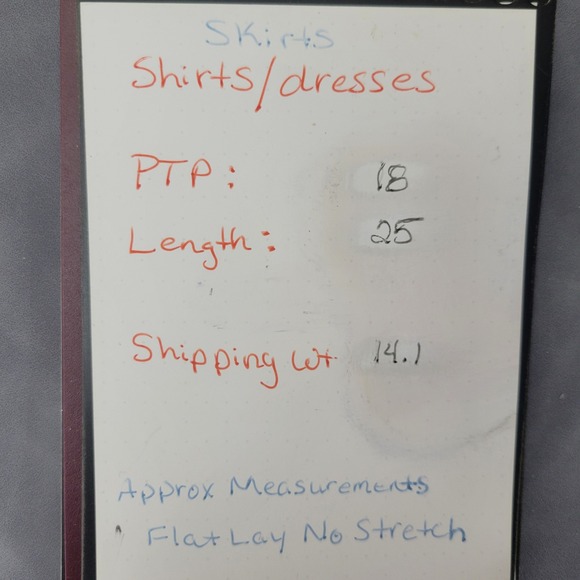 Skirts
Shirts/dresses
PTP: 18
Length: 25
Shipping Wt 14.1
Approx Measurements
Flat Lay No Stretch